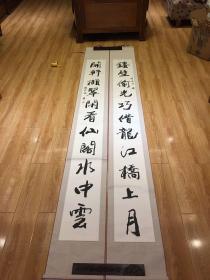 鑿壁偷光巧借龍江橋上月
開軒挹翠閒看仙閣水中雲